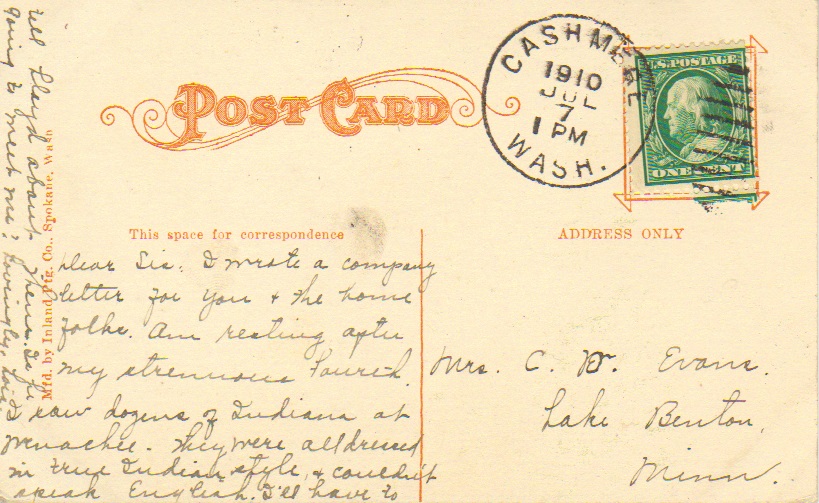 POST CARD
CASHMERE
1910
JUL
7
1 PM
WASH.
U.S. POSTAGE
ONE CENT
This space for correspondence
ADDRESS ONLY
Mfd. by Inland Ptg. Co., Spokane, Wash
Dear Sis: I wrote a company
letter for you & the home
folks. Am resting after
my strenuous Fourth.
I saw dozens of Indians at
Wenachee. They were all dressed
in true Indian style, & couldn't
speak English. I'll have to
tell Lloyd about them. Is he
going to meet me? Lovingly,
Mrs. C. W. Evans.
Lake Benton,
Minn.